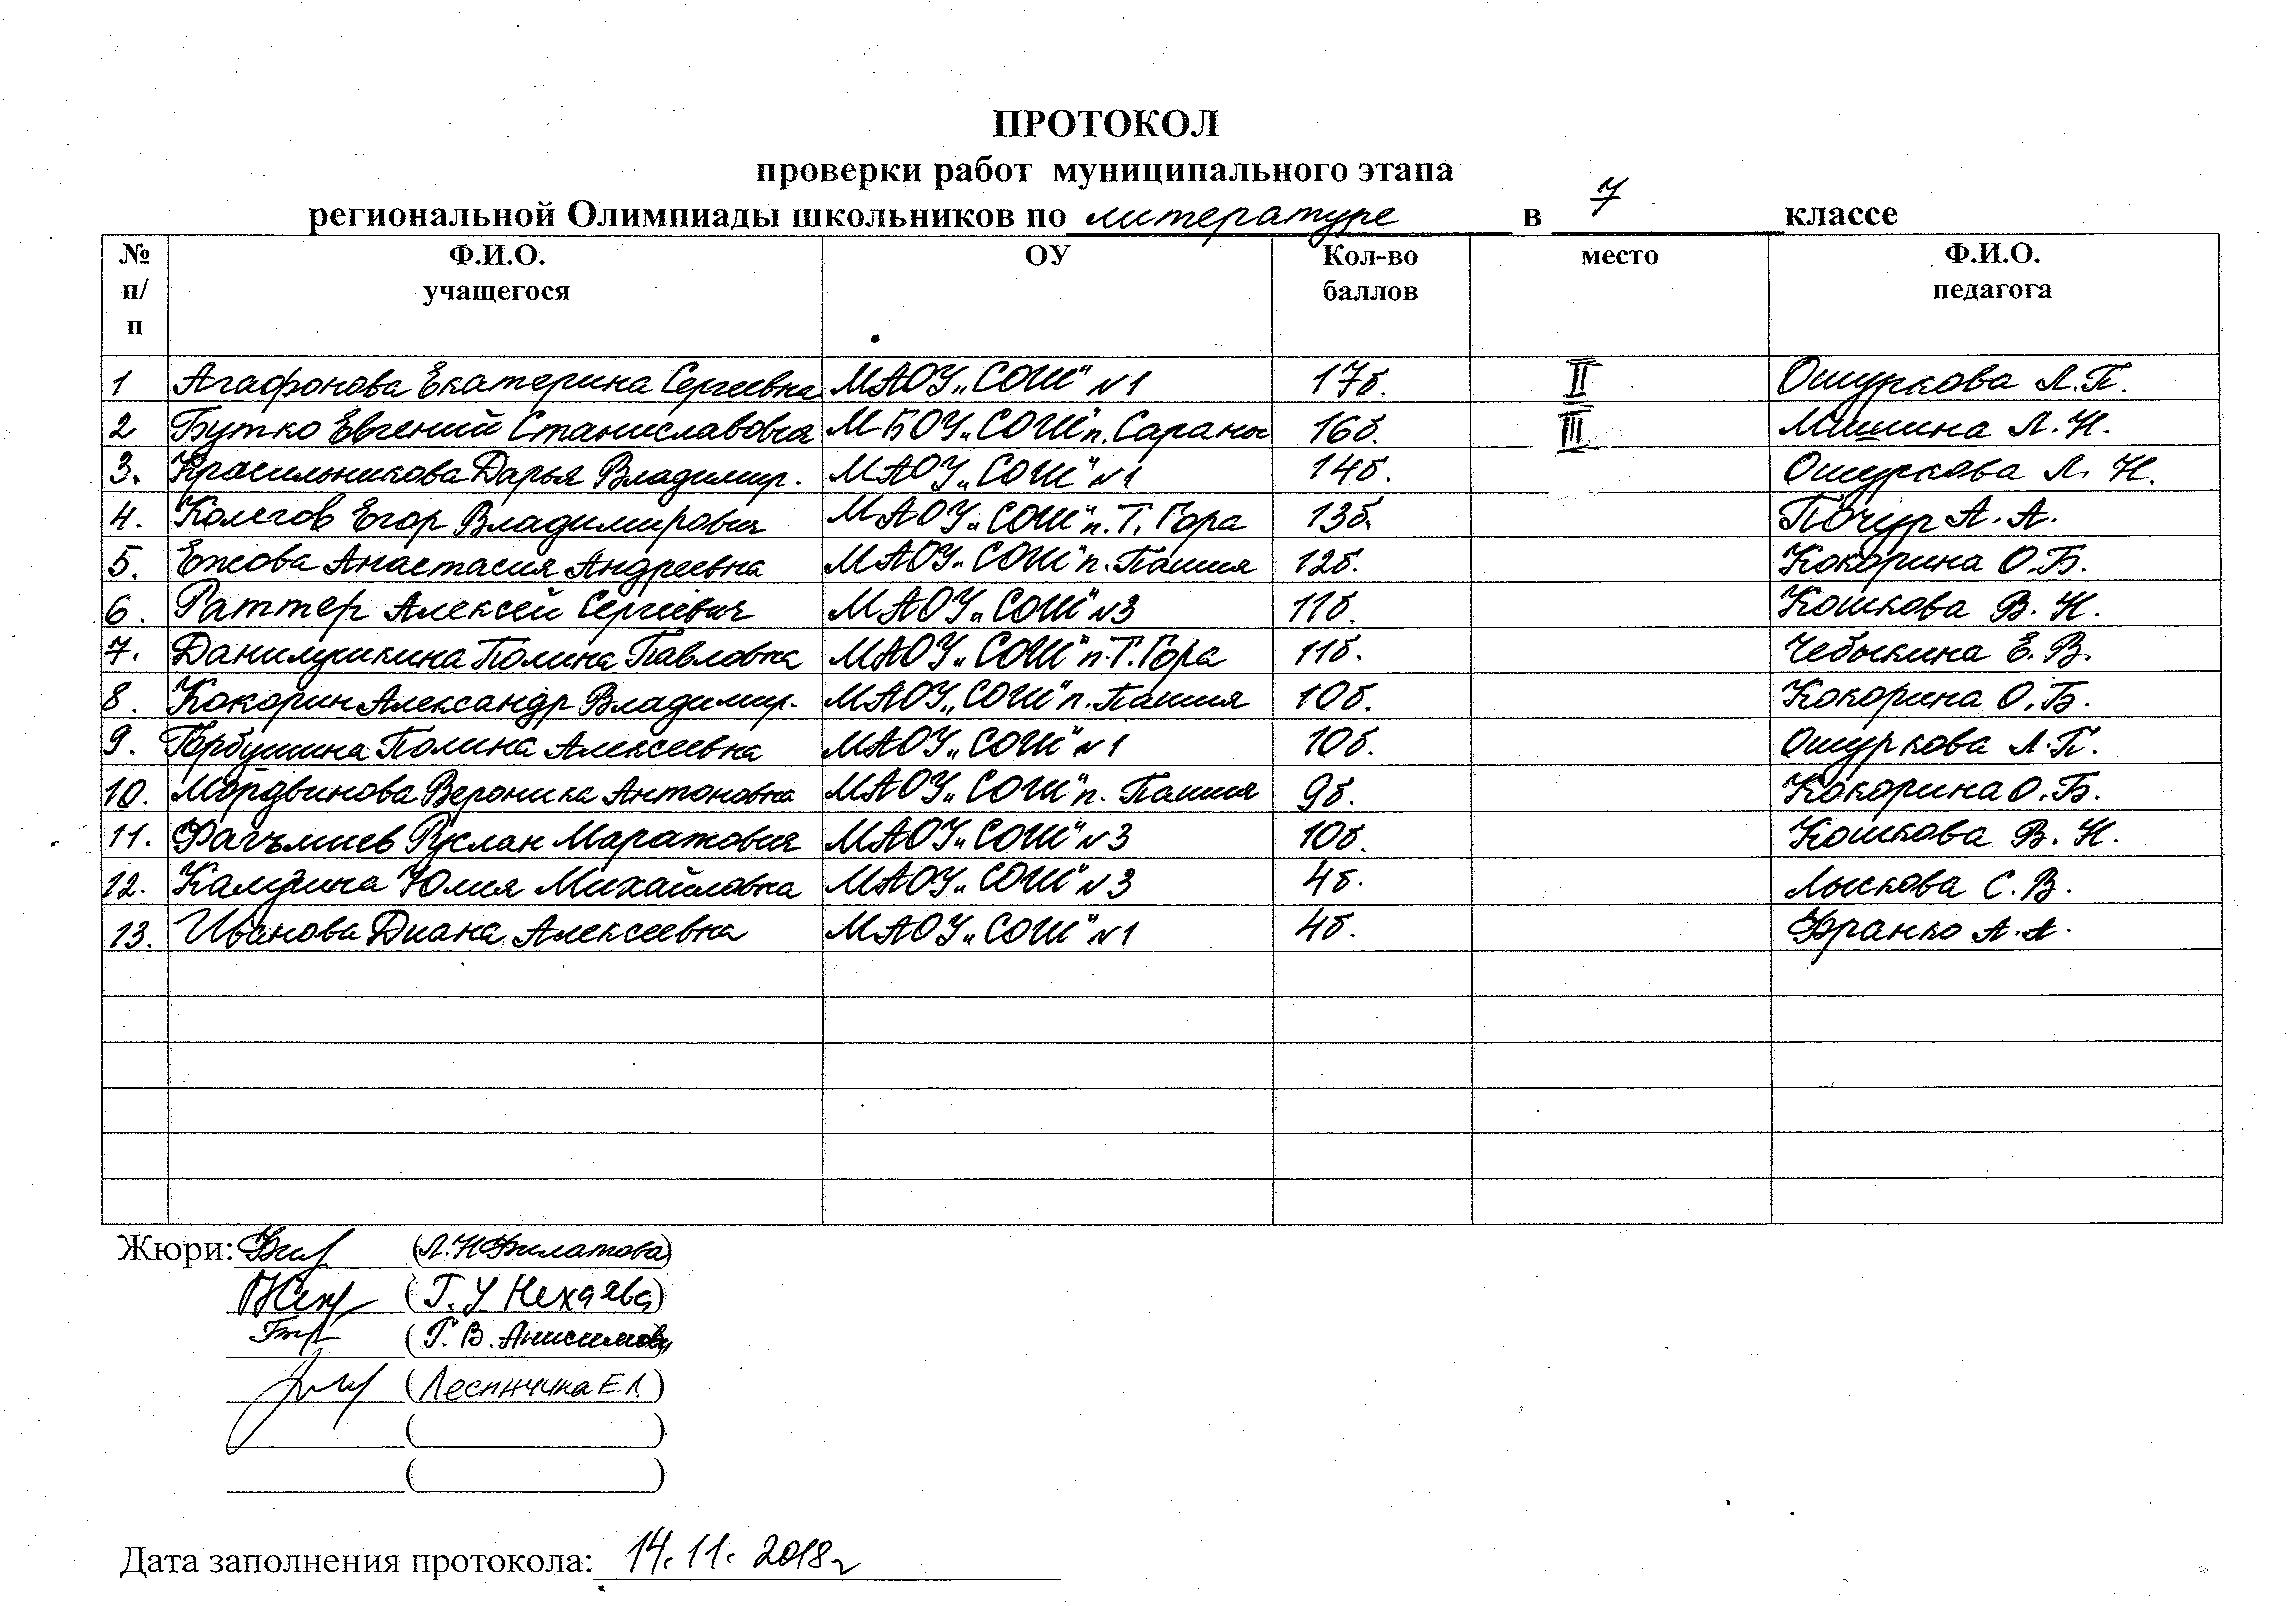 ПРОТОКОЛ
проверки работ муниципального этапа
региональной Олимпиады школьников по литературе в 7 классе
№ п/п Ф.И.О. учащегося ОУ Кол-во баллов место Ф.И.О. педагога
1 Агафонова Екатерина Сергеевна МАОУ „СОШ" №1 17б. II Ошуркова Л.П.
2 Бутко Евгений Станиславовна МБОУ „СОШ" п. Сараны 16б. III Мишина Л.Н.
3. Красильникова Дарья Владимир. МАОУ „СОШ" №1 14б. Ошуркова Л. Н.
4. Колегов Егор Владимирович МАОУ „СОШ" п. Т. Гора 13б. Почур А. А.
5. Ежова Анастасия Андреевна МАОУ „СОШ" п. Пашия 12б. Кокорина О.Б.
6. Раттер Алексей Сергеевич МАОУ „СОШ" №3 11б. Кошкова В. Н.
7. Данилушкина Полина Павловна МАОУ „СОШ" п. Т. Гора 11б. Чебыкина Е. В.
8. Кокорин Александр Владимир. МАОУ „СОШ" п. Пашия 10б. Кокорина О. Б.
9. Горбушина Полина Алексеевна МАОУ „СОШ" №1 10б. Ошуркова Л.П.
10. Мордвинова Вероника Антоновна МАОУ „СОШ" п. Пашия 9б. Кокорина О.Б.
11. Руслан Маратович МАОУ „СОШ" №3 10б. Кошкова В. Н.
12. Юлия Михайловна МАОУ „СОШ" №3 4б. Лыскова С. В.
13. Иванова Диана Алексеевна МАОУ „СОШ" №1 4б. Франко А. А.
Жюри: (Л.Н Филатова)
(Г. У Нехаева)
(Г. В. Анисимова)
( Е Л.)
( )
( )
Дата заполнения протокола: 14.11.2018г